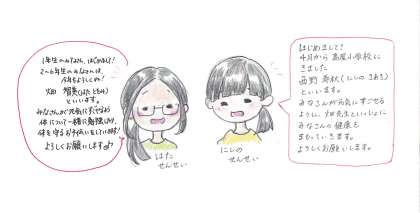 1年生のみなさん、はじめまして!
2~6年生のみなさんは、
今年もよろしくね!
畑 智美(はた ともみ)
といいます。
みなさんが元気にすごせるよう
体について一緒に勉強したり、
体を守るお手伝いをしていきます!
よろしくお願いします♪
はた
せんせい
にしの
せんせい
はじめまして!
4月から 高屋小学校に
きました
西野 寿秋(にしの
といいます。
みなさんが元気にすごせる
ように、畑先生といっしょに
みなさんの健康を
まもっていきます。
よろしくお願いします。